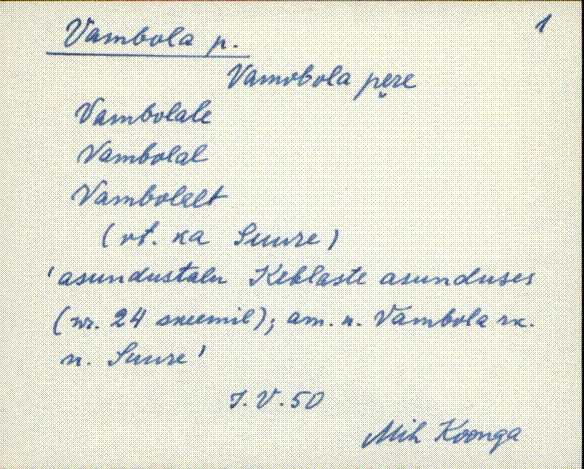 Vambola p. 1
Vamobola pere
Vambolale
Vambolal
Vambolalt
(vt. ka Suure)
'asundustalu Keblaste asunduses
(nr. 24 skeemil); am. n. Vambola rk.
n. Suure'
J.V.50
Mih Koonga